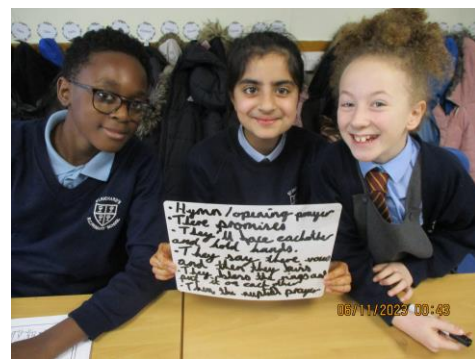 • Hymn/opening prayer
• There promises
• They'll face eachother
and hold hands.
• They say there vows
and then they
put on eachother
• Then the nuptial prayer
06/11/2023 00:43